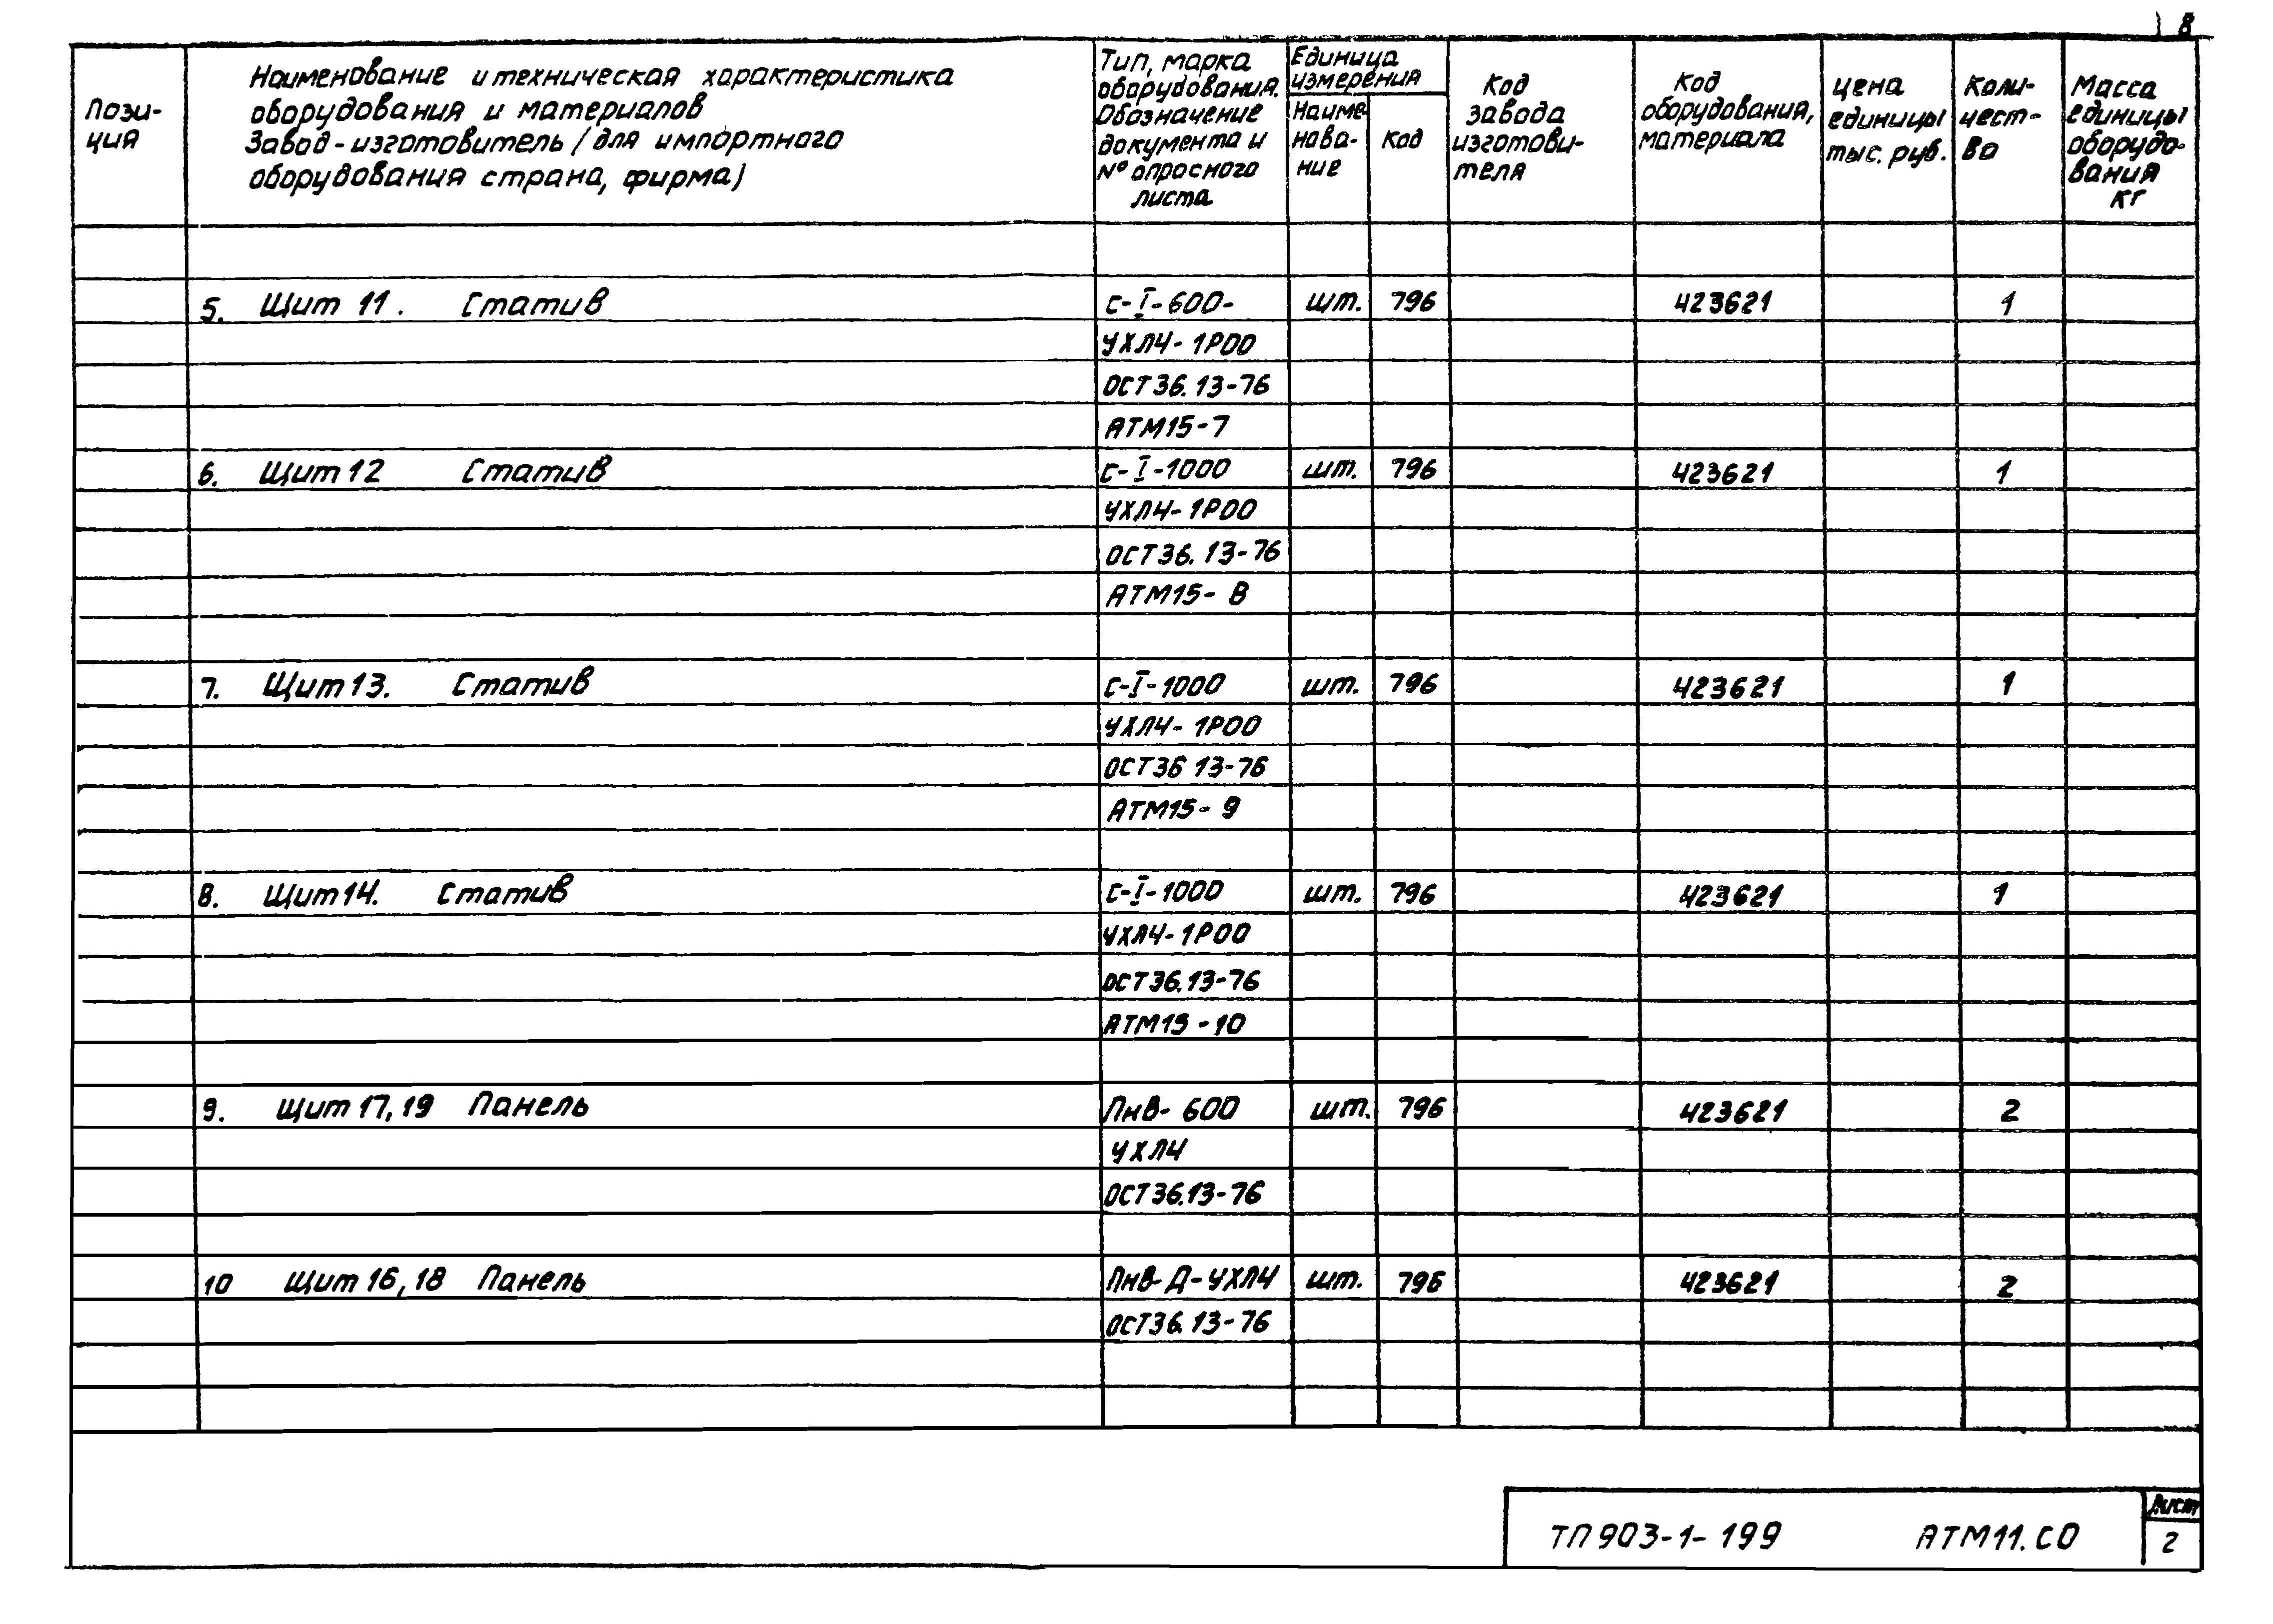 8
Пози-
ция
Наименование и техническая характеристика
оборудования и материалов
Завод-изготовитель /для импортного
оборудования страна, фирма)
Тип, марка
оборудования.
Обозначение
документа и
№ опросного
листа
Единица
измерения
Наиме-
нова-
ние
Код
Код
завода
изготови-
теля
Код
оборудования,
материала
цена
единицы
тыс. руб.
Коли-
чест-
во
Масса
единицы
оборудо-
вания
кг
5. Щит 11. Статив С-I-600- шт. 796 423621 1
УХЛ4-1Р00
ОСТ36.13-76
АТМ15-7
6. Щит 12 Статив С-I-1000 шт. 796 423621 1
УХЛ4-1Р00
ОСТ36.13-76
АТМ15-8
7. Щит 13. Статив С-I-1000 шт. 796 423621 1
УХЛ4-1Р00
ОСТ36 13-76
АТМ15-9
8. Щит 14. Статив С-I-1000 шт. 796 423621 1
УХЛ4-1Р00
ОСТ36.13-76
АТМ15-10
9. Щит 17,19 Панель ПнВ-600 шт. 796 423621 2
УХЛ4
ОСТ36.13-76
10 Щит 16,18 Панель ПнВ-Д-УХЛ4 шт. 796 423621 2
ОСТ36.13-76
ТП903-1-199 АТМ11.СО
Лист
2